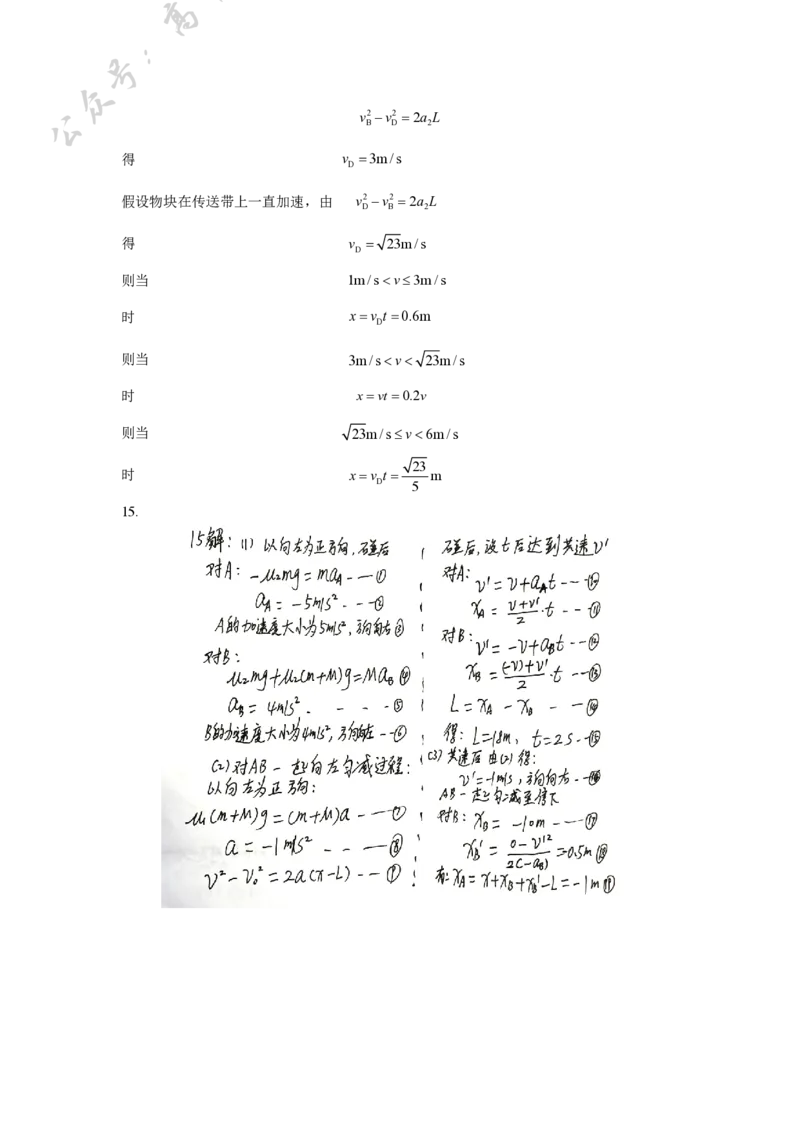 公众号：高
v_B^2 - v_D^2 = 2a_2L
得 v_D = 3m/s
假设物块在传送带上一直加速，由 v_D^2 - v_B^2 = 2a_2L
得 v_D = √23m/s
则当 1m/s < v ≤ 3m/s
时 x = v_Dt = 0.6m
则当 3m/s < v < √23m/s
时 x = vt = 0.2v
则当 √23m/s ≤ v < 6m/s
时 x = v_Dt = √23/5 m
15.
15解：(1) 以向左为正方向，碰后
对A：-μ₂mg = ma_A --- ①
a_A = -5m/s² --- ②
A的加速度大小为5m/s²，方向向右③
对B：
μ₂mg+μ₂(m+M)g=Ma_B ④
a_B = 4m/s². - - - - ⑤
B的加速度大小为4m/s²，方向向左--⑥
(2)对AB一起向左匀减过程：
以向左为正方向：
μ₁(m+M)g=(m+M)a ---⑦
a = -1m/s² - - - ⑧
v²-v₀²=2a(x-L) --⑨
碰后，设t后达到共速v'
对A：
v'=v+a_At --- ⑩
x_A = (v+v')/2 ·t -- ⑪
对B：
v'= -v+a_Bt --⑫
x_B = ((-v)+v')/2 ·t --⑬
L = x_A - x_B - - ⑭
得：L=18m，t=2s--⑮
(3)共速后由(2)得：
v'=-1m/s，方向向右--⑯
AB一起匀减至停下
对B：x_B = -10m ---⑰
x_B' = (0-v'²)/(2(-a_B)) =0.5m ⑱
有：x_A=x+x_B+x_B'-L=-1m⑲